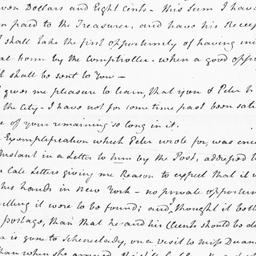 ven Dollars and Eight Cents – this Sum I have
n paid to the Treasurer, and have his Receip
I shall take the first opportunity of having
al from by the Comptroller. when a good oppor
it shall be sent to You –
t gives me pleasure to learn that you & Peter h
the City – I have not for some time past been
e of your remaining so long in it.
Exemplification which Peter wrote for, was enc
Instant in a Letter to him by the Post, addressed to
Late Letters giving me Reason to expect that it w
his hands in New York – no private opportun
elling it were to be found; and I thought it bett
postage, than that he and his Clients should be d
is gone to Schenectady, on a visit to Miss Duan